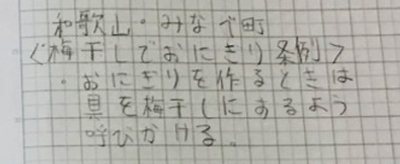 和歌山・みなべ町
<梅干しでおにぎり条例>
・おにぎりを作るときは
具を梅干しにするよう
呼びかける。